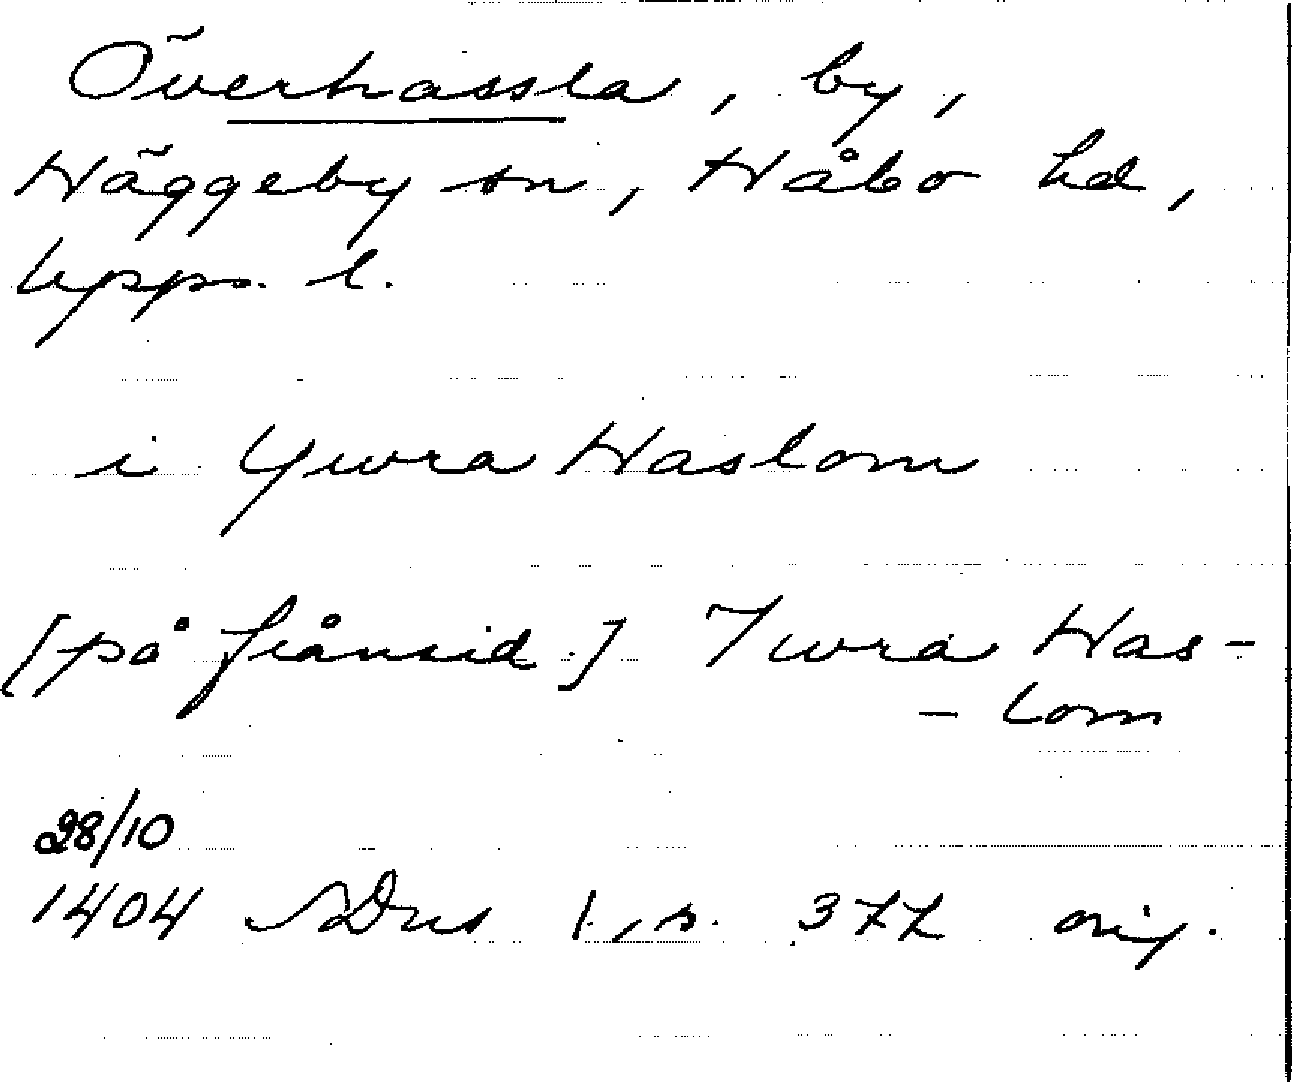 Överhassla, by,
Häggeby sn, Håbo hd,
Upps. l.
i Ywra Haslom
[på frånsid.] Ywra Has-
- lom
28/10
1404 SDns 1, s. 377 orig.